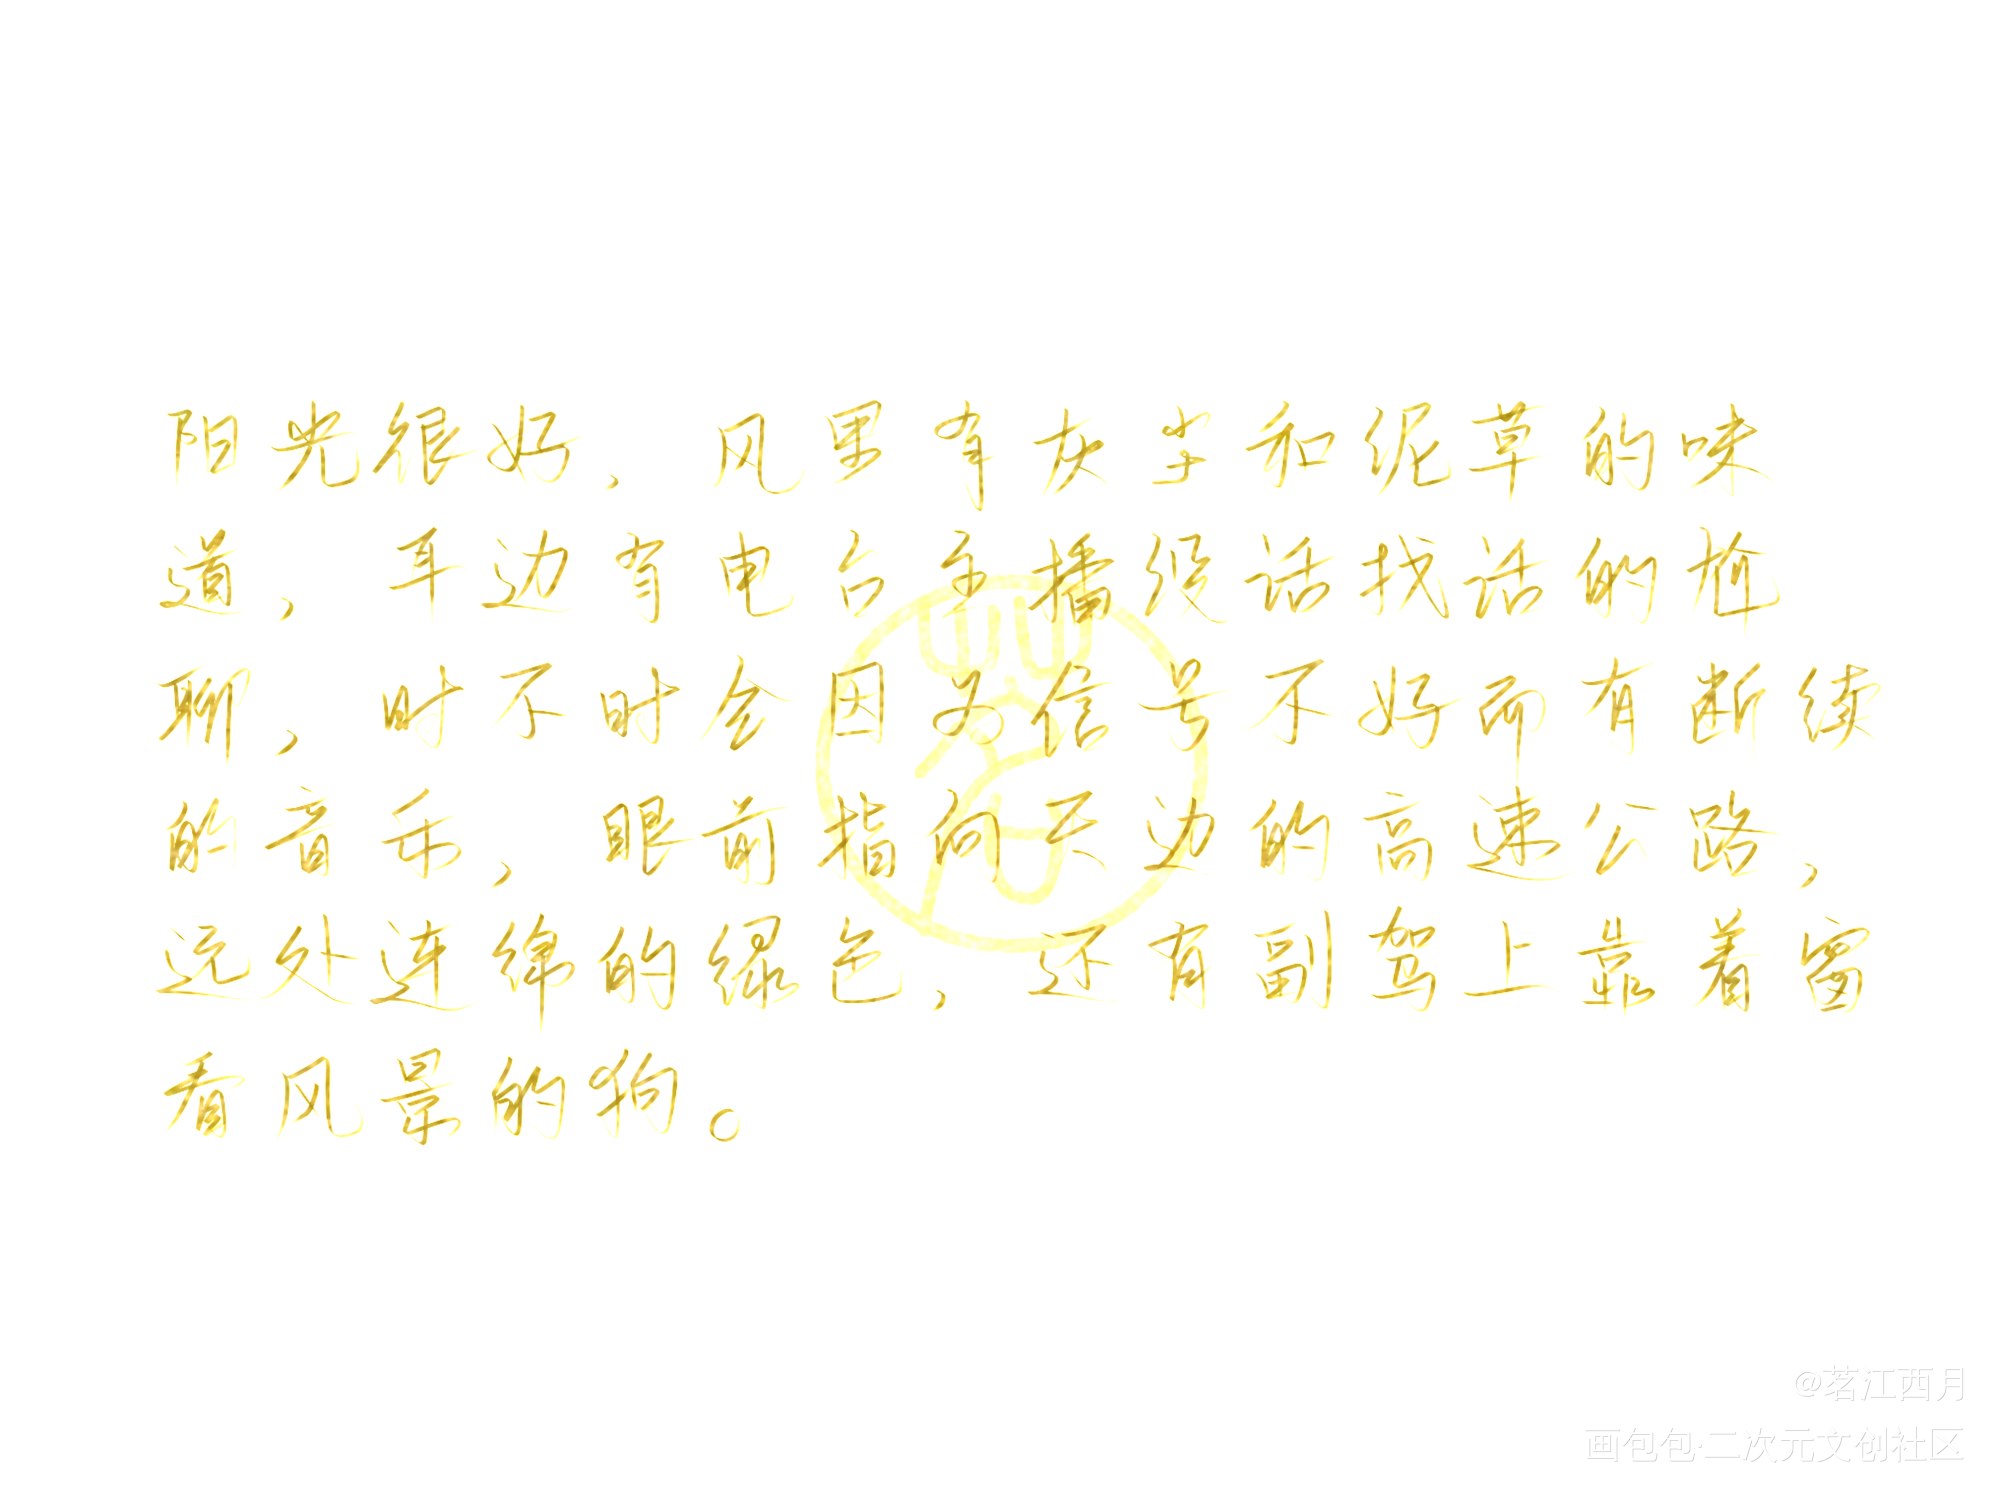 阳光很好，风里有灰尘和泥草的味
道，耳边有电台主播没话找话的尬
聊，时不时会因为信号不好而有断续
的音乐，眼前指向天边的高速公路，
远处连绵的绿色，还有副驾上靠着窗
看风景的狗。
@茗江西月
画包包·二次元文创社区